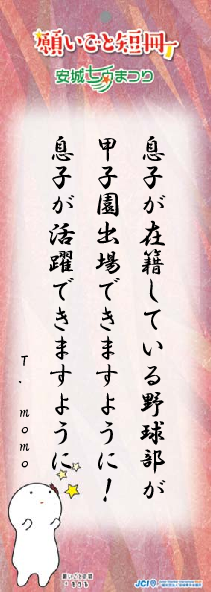 願いごと短冊
安城七夕まつり
息子が在籍している野球部が
甲子園出場できますように！
息子が活躍できますように
T.momo
願いごと妖精
JCI